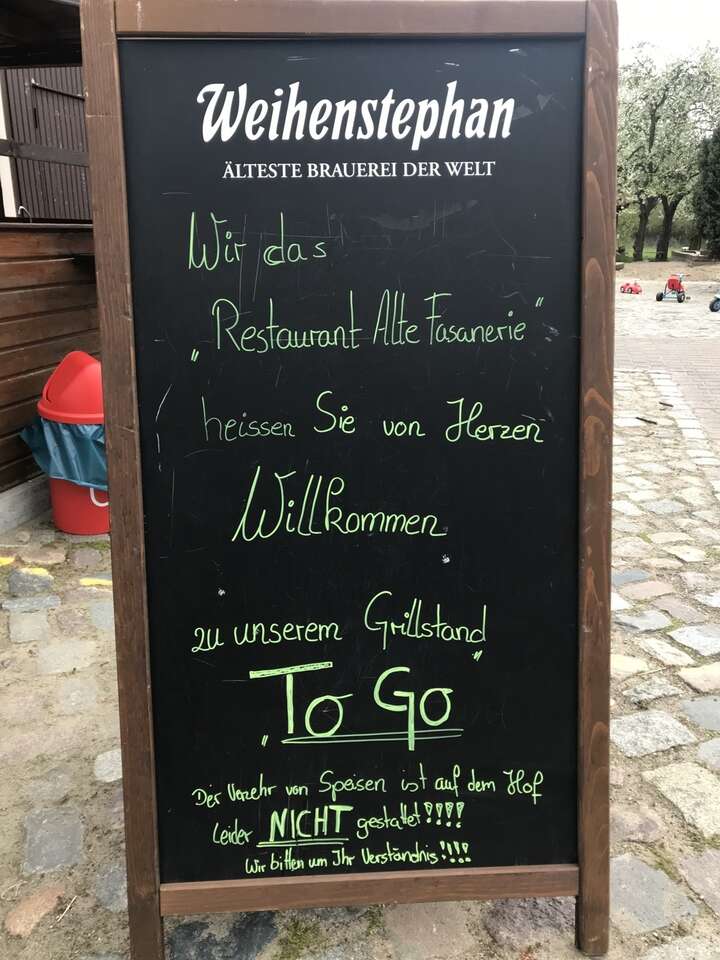 Weihenstephan
ÄLTESTE BRAUEREI DER WELT
Wir das
„Restaurant Alte Fasanerie"
heissen Sie von Herzen
Willkommen
zu unserem Grillstand
„To Go"
Der Verzehr von Speisen ist auf dem Hof
leider NICHT gestattet!!!!
Wir bitten um Ihr Verständnis!!!!